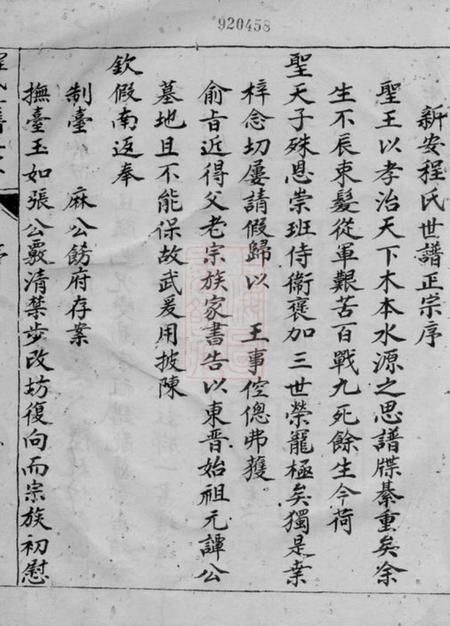 920458
新安程氏世譜正宗序
聖王以孝治天下木本水源之思譜牒綦重矣余
生不辰束髮從軍艱苦百戰九死餘生今荷
聖天子殊恩崇班侍衛褒加三世榮寵極矣獨是桑
梓念切屢請假歸以 王事倥傯弗獲
俞旨近得父老宗族家書告以東晉始祖元譚公
墓地且不能保故武爰用披陳
欽假南返奉
制臺 麻公飭府存案
撫臺玉如張公覈清禁步改坊復向而宗族初慰